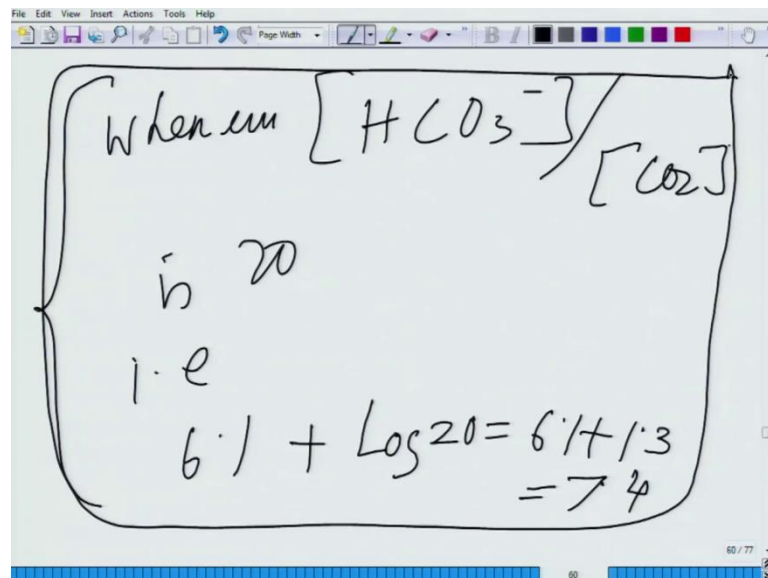 File Edit View Insert Actions Tools Help
Page Width
B I
when [HCO3-]/[CO2]
is 20
i.e
6.1 + Log20 = 6.1+1.3
= 7.4
60 / 77
60